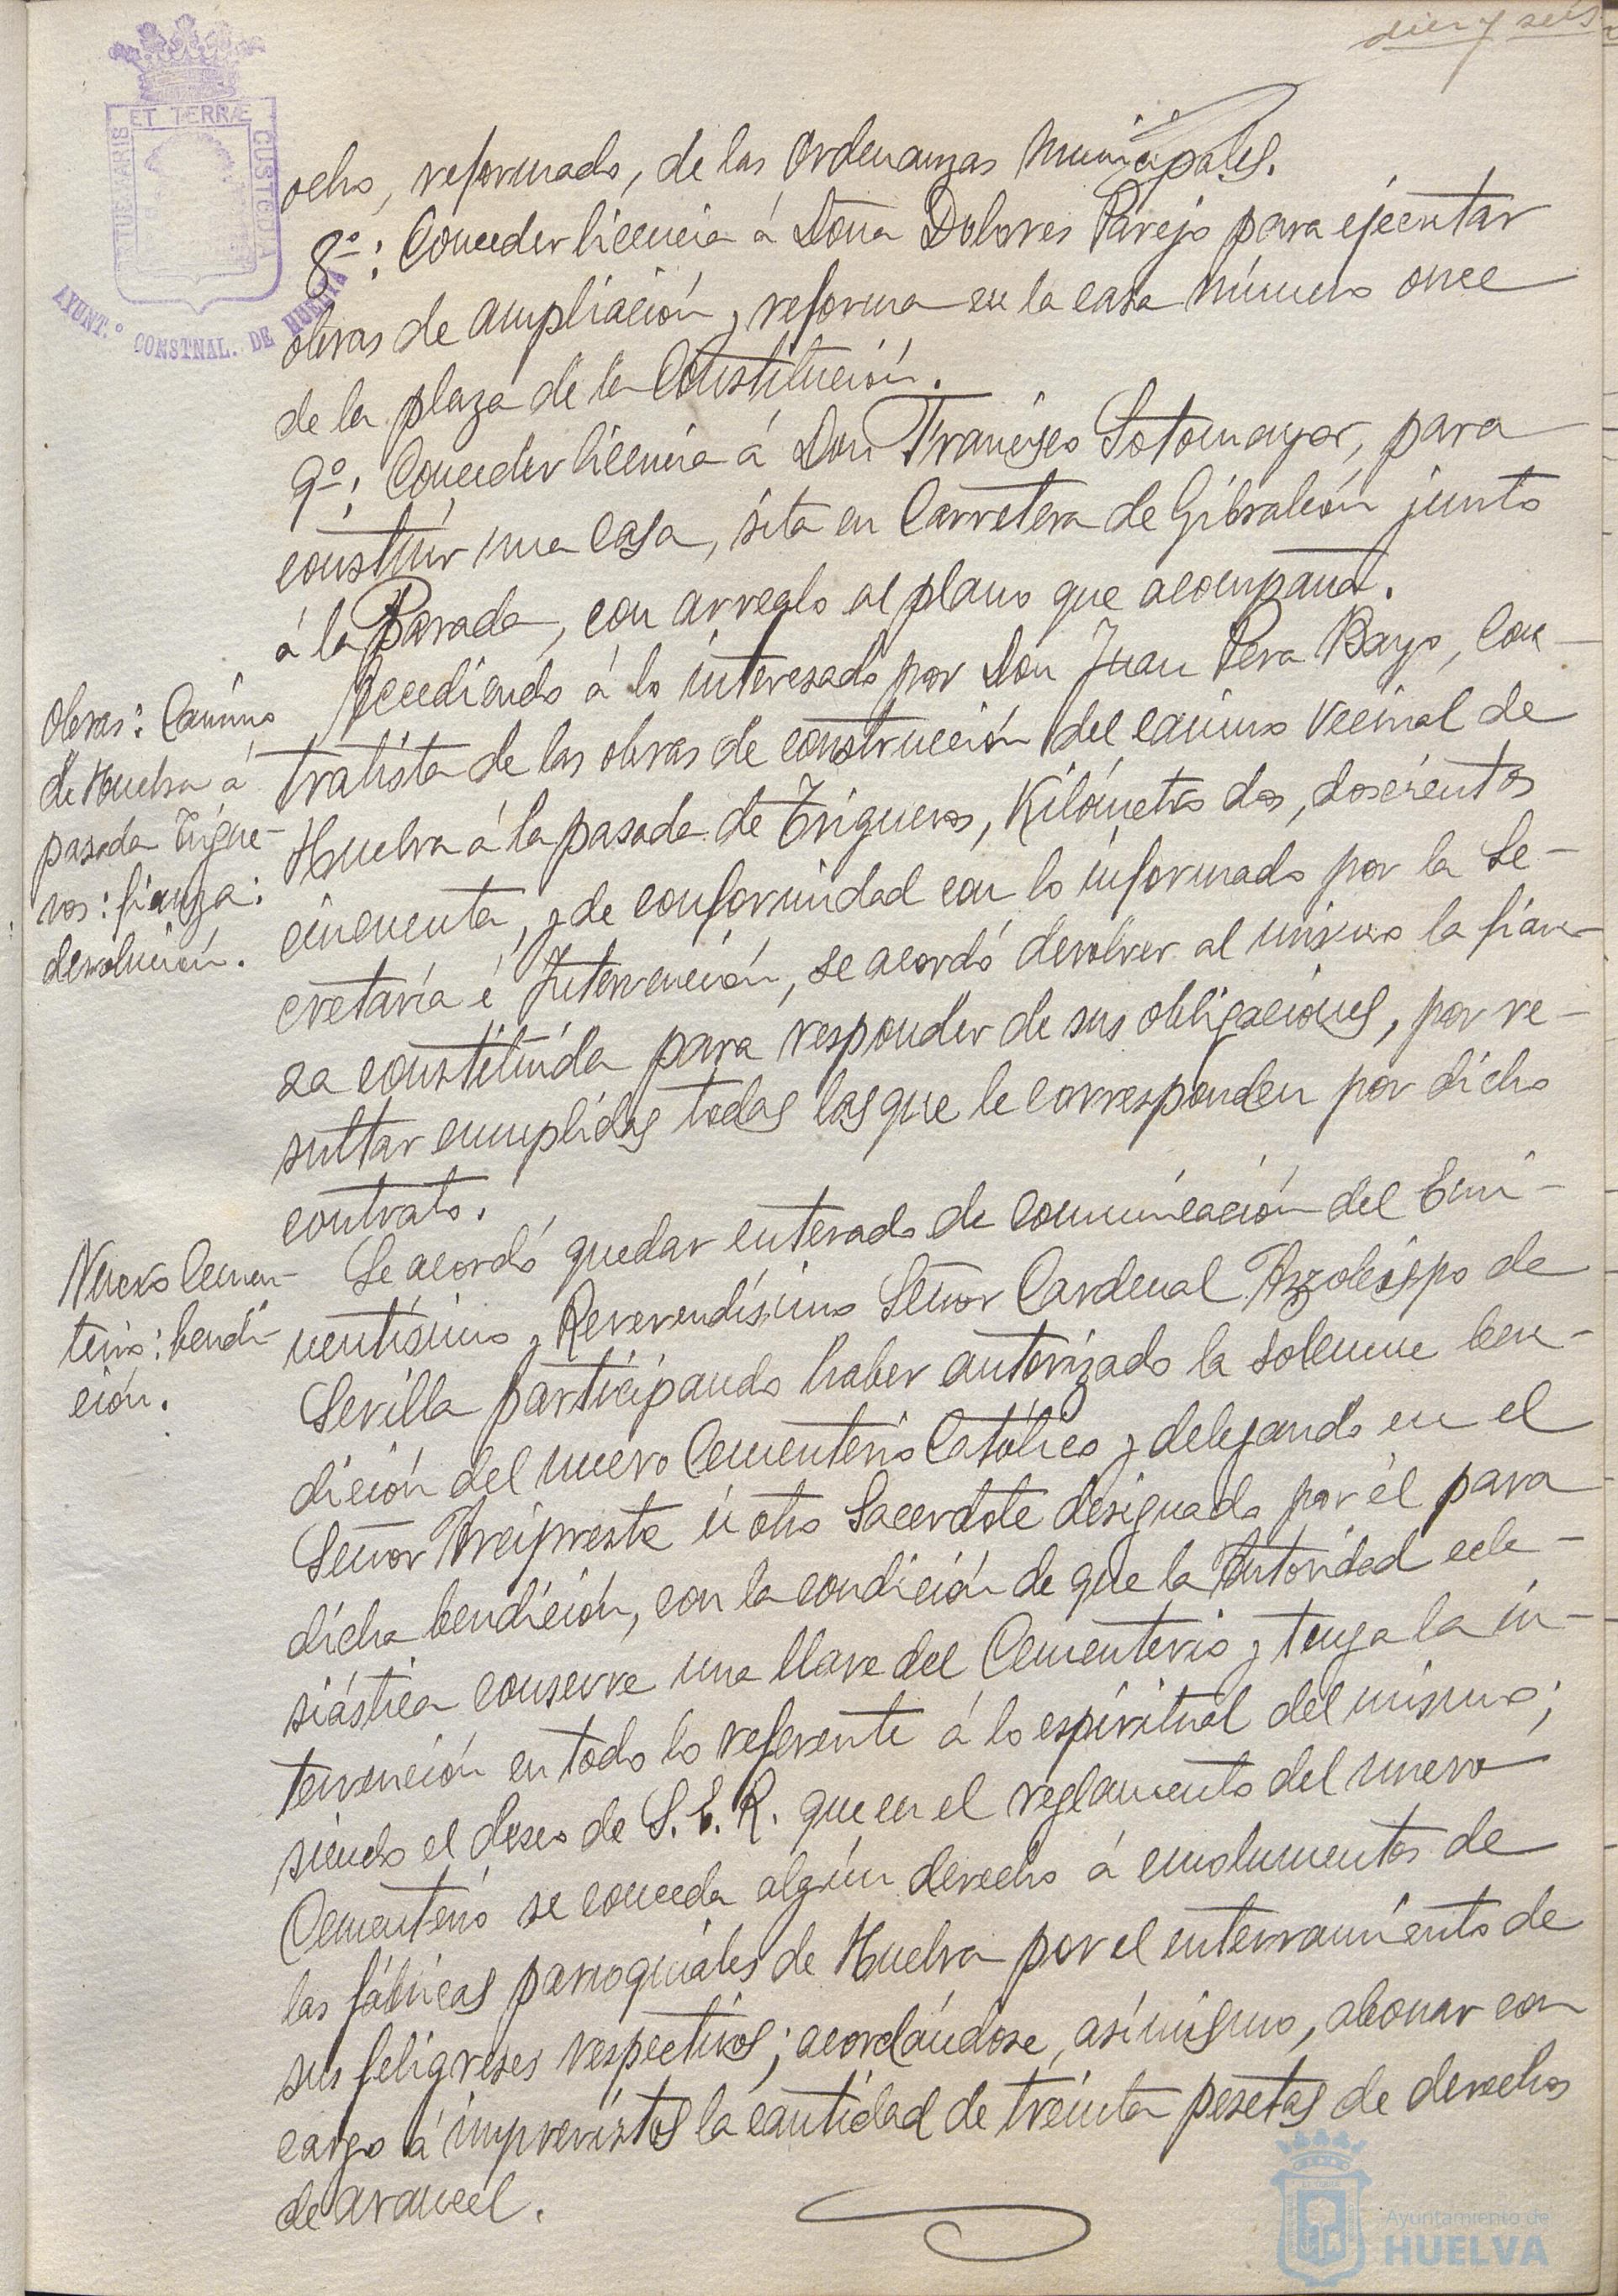 diez y seis
ET TERRÆ
CUSTODIA
AYUNT.º CONSTNAL. DE HUELVA
ocho, reformado, de las Ordenanzas Municipales.
8º: Conceder licencia á Doña Dolores Parejo para ejecutar
obras de ampliación y reforma en la casa número once
de la plaza de la Constitución.
9º: Conceder licencia á Don Francisco Sotomayor, para
construir una casa, sita en Carretera de Gibraleón junto
á la Parada, con arreglo al plano que acompaña.
Obras: Camino
de Huelva á
pasada Trigue-
ros: fianza:
devolución.
Accediendo á lo interesado por Don Juan Pera Bayo, con-
tratista de las obras de construcción del camino vecinal de
Huelva á la pasada de Trigueros, Kilómetro dos, doscientos
cincuenta, y de conformidad con lo informado por la Se-
cretaría é Intervención, se acordó devolver al mismo la fian-
za constituída para responder de sus obligaciones, por re-
sultar cumplidas todas las que le corresponden por dicho
contrato.
Nuevo Cemen-
terio: bendi-
ción.
Se acordó quedar enterado de comunicación del Emi-
nentísimo y Reverendísimo Señor Cardenal Arzobispo de
Sevilla participando haber autorizado la solemne ben-
dición del nuevo Cementerio Católico y delegando en el
Señor Arcipreste ú otro Sacerdote designado por él para
dicha bendición, con la condición de que la Autoridad ecle-
siástica conserve una llave del Cementerio y tenga la in-
tervención en todo lo referente á lo espiritual del mismo;
siendo el deseo de S. E. R. que en el reglamento del nuevo
Cementerio se conceda algún derecho á emolumentos de
las fábricas parroquiales de Huelva por el enterramiento de
sus feligreses respectivos; acordándose, asímismo, abonar con
cargo á imprevistos la cantidad de treinta pesetas de derechos
de arancel.
Ayuntamiento de
HUELVA